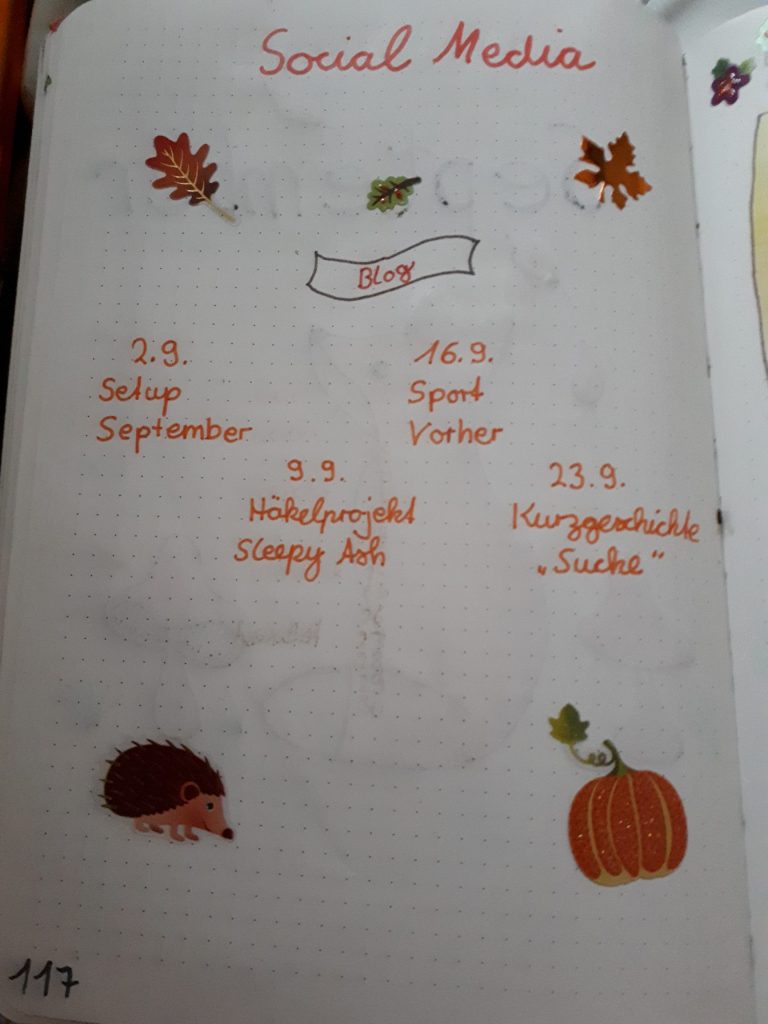 Social Media
Blog
2.9.
Setup
September
16.9.
Sport
Vorher
9.9.
Häkelprojekt
Sleepy Ash
23.9.
Kurzgeschichte
„Sucke“
117